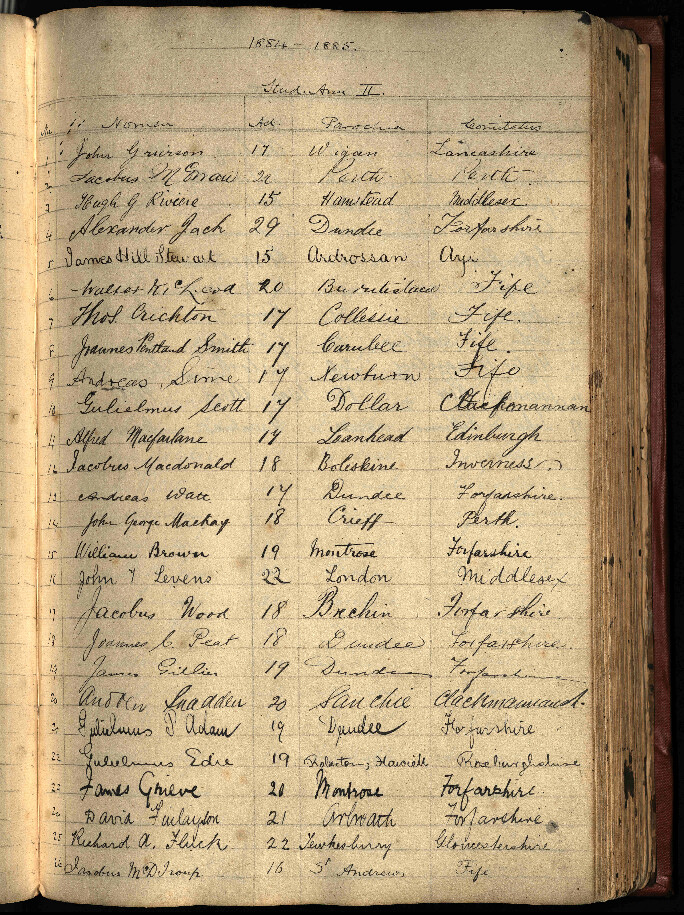 1884 - 1885.
Stud. Ann II.
No Nomen Aet. Parochia Comitatus
1 John Grierson 17 Wigan Lancashire
2 Jacobus 22 Perth Perth
3 Hugh G Riviere 15 Hamstead Middlesex
4 Alexander Jack 29 Dundee Forfarshire
5 James Hill Stewart 15 Ardrossan Ayr
6 Walter McLeod 20 Fife
7 Thos. Crichton 17 Collessie Fife.
8 Joannes Pentland Smith 17 Carnbee Fife.
9 Andreas Sime 17 Newburn Fife
10 Gulielmus Scott 17 Dollar Clackmannan
11 Alfred Macfarlane 17 Loanhead Edinburgh
12 Jacobus Macdonald 18 Boleskine Inverness.
13 Andreas Watt 17 Dundee Forfarshire.
14 John George Mackay 18 Crieff Perth.
15 William Brown 19 Montrose Forfarshire
16 John T Levens 22 London Middlesex
17 Jacobus Wood 18 Brechin Forfarshire
18 Joannes C. Peat 18 Dundee Forfarshire.
19 James Gillies 19 Dundee Forfarshire
20 Andrew Snadden 20 Sauchie
21 Gulielmus P Adam 19 Dundee Forfarshire
22 Gulielmus Edie 19 Roberton, Roxburghshire
23 James Grieve 20 Montrose Forfarshire.
24 David Finlayson 21 Arbroath Forfarshire
25 Richard A. Fluck 22 Tewkesbury Gloucestershire
26 Jacobus McD Troup 16 St Andrews Fife